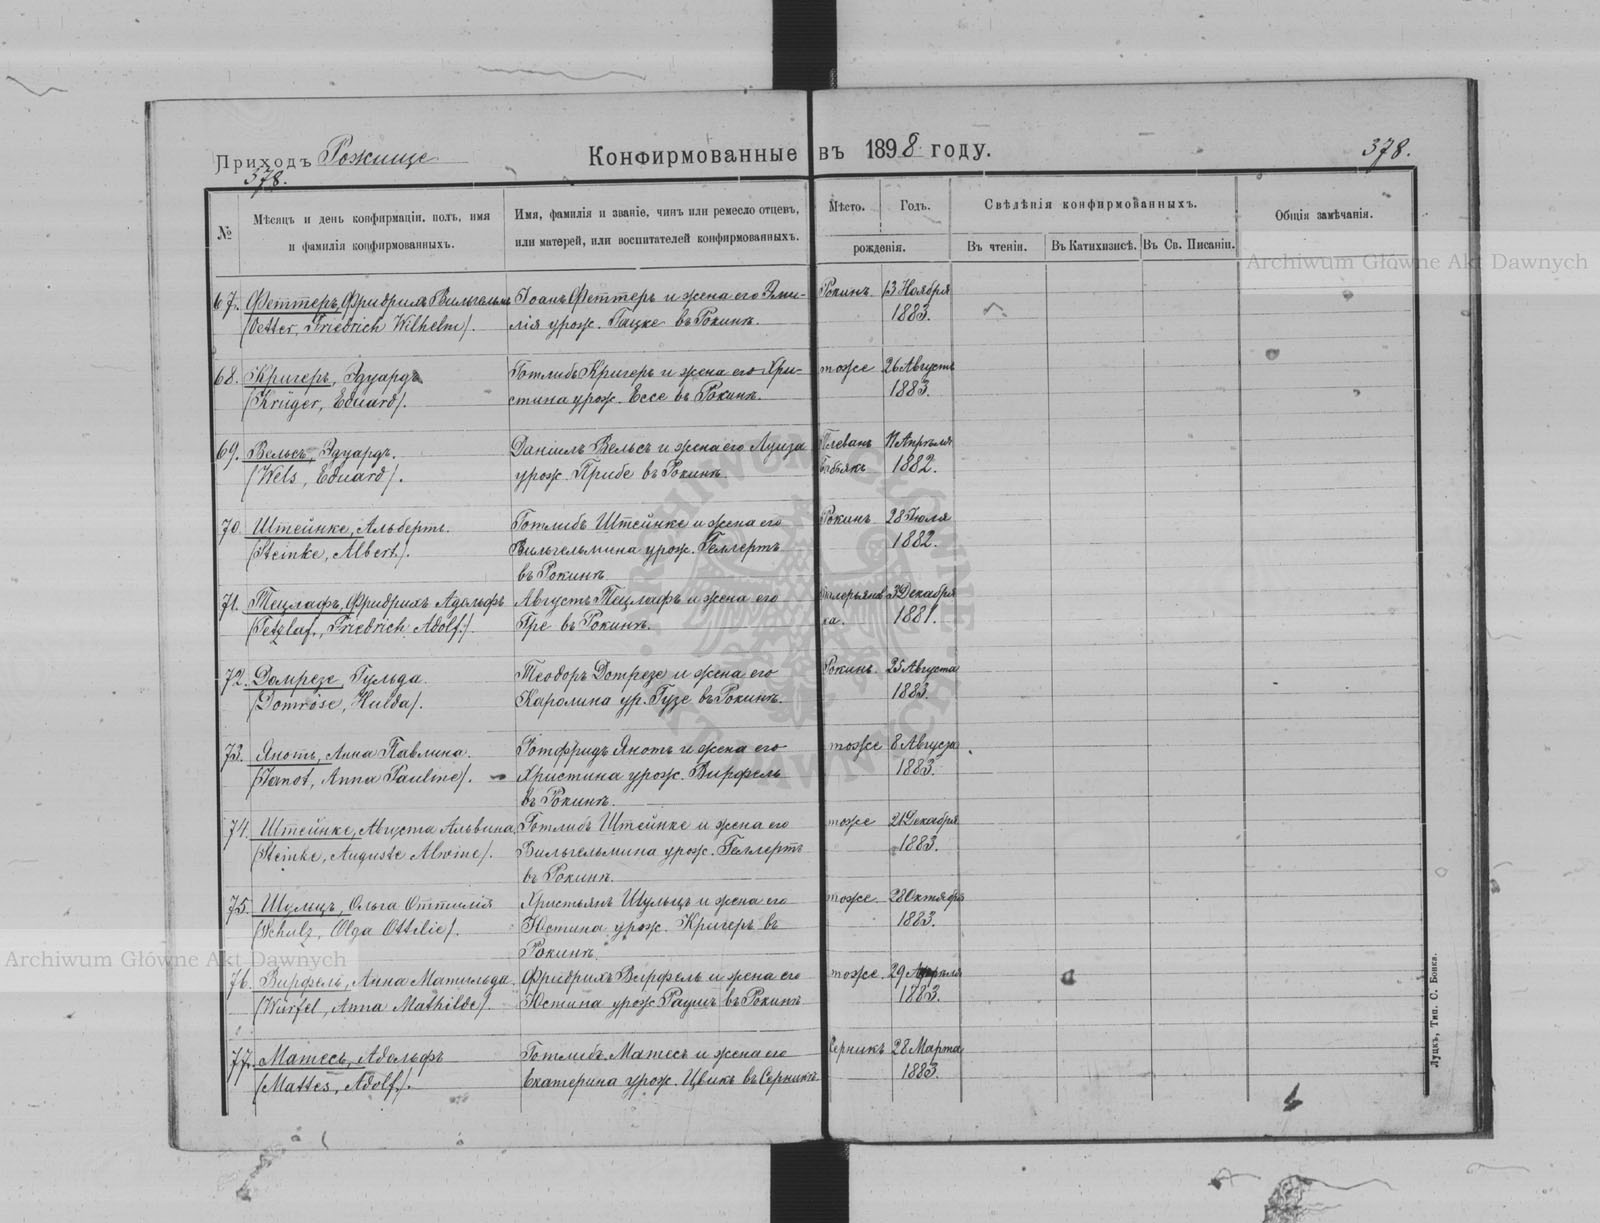 Приходъ Рожище
Конфирмованные въ 1898 году.
378.
378.
№
Мѣсяцъ и день конфирмаціи, полъ, имя
и фамилія конфирмованныхъ.
Имя, фамилія и званіе, чинъ или ремесло отцевъ,
или матерей, или воспитателей конфирмованныхъ.
Мѣсто.
Годъ.
рожденія.
Свѣдѣнія конфирмованныхъ.
Въ чтеніи.
Въ Катихизисѣ.
Въ Св. Писаніи.
Общія замѣчанія.
Archiwum Główne Akt Dawnych
67. Феттеръ, Фридрихъ Вильгельмъ Іоанъ Феттеръ и жена его Эми- Рокинъ 13 Ноября
(Vetter, Friedrich Wilhelm). лія урож. Гацке въ Рокинѣ. 1883.
68. Кригеръ, Эдуардъ Готлибъ Кригеръ и жена его Хри- тоже 26 Августъ
(Krüger, Eduard). стина урож. Ессе въ Рокинѣ. 1883.
69. Вельсъ, Эдуардъ. Даніилъ Вельсъ и жена его Луиза Клевань Апрѣля
(Wels, Eduard). урож. Прибе въ Рокинѣ. 1882.
70. Штейнке, Альбертъ. Готлибъ Штейнке и жена его Рокинъ 28 Іюля
(Steinke, Albert). Вильгельмина урож. Геллертъ 1882.
въ Рокинѣ
71. Тецлафъ, Фридрихъ Адольфъ Августъ Тецлафъ и жена его Декабря
(Tetzlaf, Friedrich Adolf). Гре въ Рокинѣ. ка. 1881.
72. Домрезе, Гульда. Теодоръ Домрезе и жена его Рокинъ. 25 Августа
(Domröse, Hulda). Каролина ур. Гузе въ Рокинѣ. 1883.
73. Янотъ, Анна Павлина. Готфридъ Янотъ и жена его тоже 8 Августа
(Janot, Anna Pauline). Христина урож. Вирфель 1883.
въ Рокинѣ.
74. Штейнке, Августа Альвина, Готлибъ Штейнке и жена его тоже 21 Декабря
(Steinke, Auguste Alwine). Вильгельмина урож. Геллертъ 1883.
въ Рокинѣ.
75. Шульцъ, Ольга Оттилія Христьянъ Шульцъ и жена его тоже. 28 Октября
(Schulz, Olga Ottilie). Юстина урож. Кригеръ въ 1883.
Рокинѣ.
Archiwum Główne Akt Dawnych
76. Вирфель, Анна Матильда. Фридрихъ Вирфель и жена его тоже. 29 Апрѣля
(Würfel, Anna Mathilde). Юстина урож. Раушъ въ Рокинѣ 1883.
77. Матесъ, Адольфъ Готлибъ Матесъ и жена его Серникъ 28 Марта
(Mattes, Adolf). Екатерина урож. Цвикъ въ Серникѣ. 1883.
Луцкъ, Тип. С. Бонка.
ARCHIWUM GŁÓWNE AKT DAWNYCH